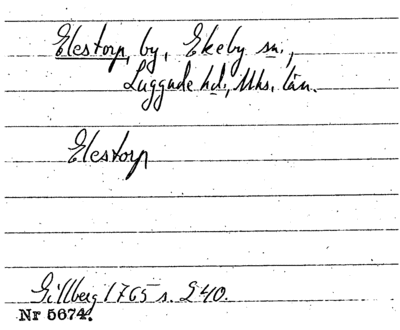 Elestorp, by, Ekeby sn.,
Luggude hd., Mhs. län.
Elestorp
Gillberg 1765 s. 240.
Nr 5674.